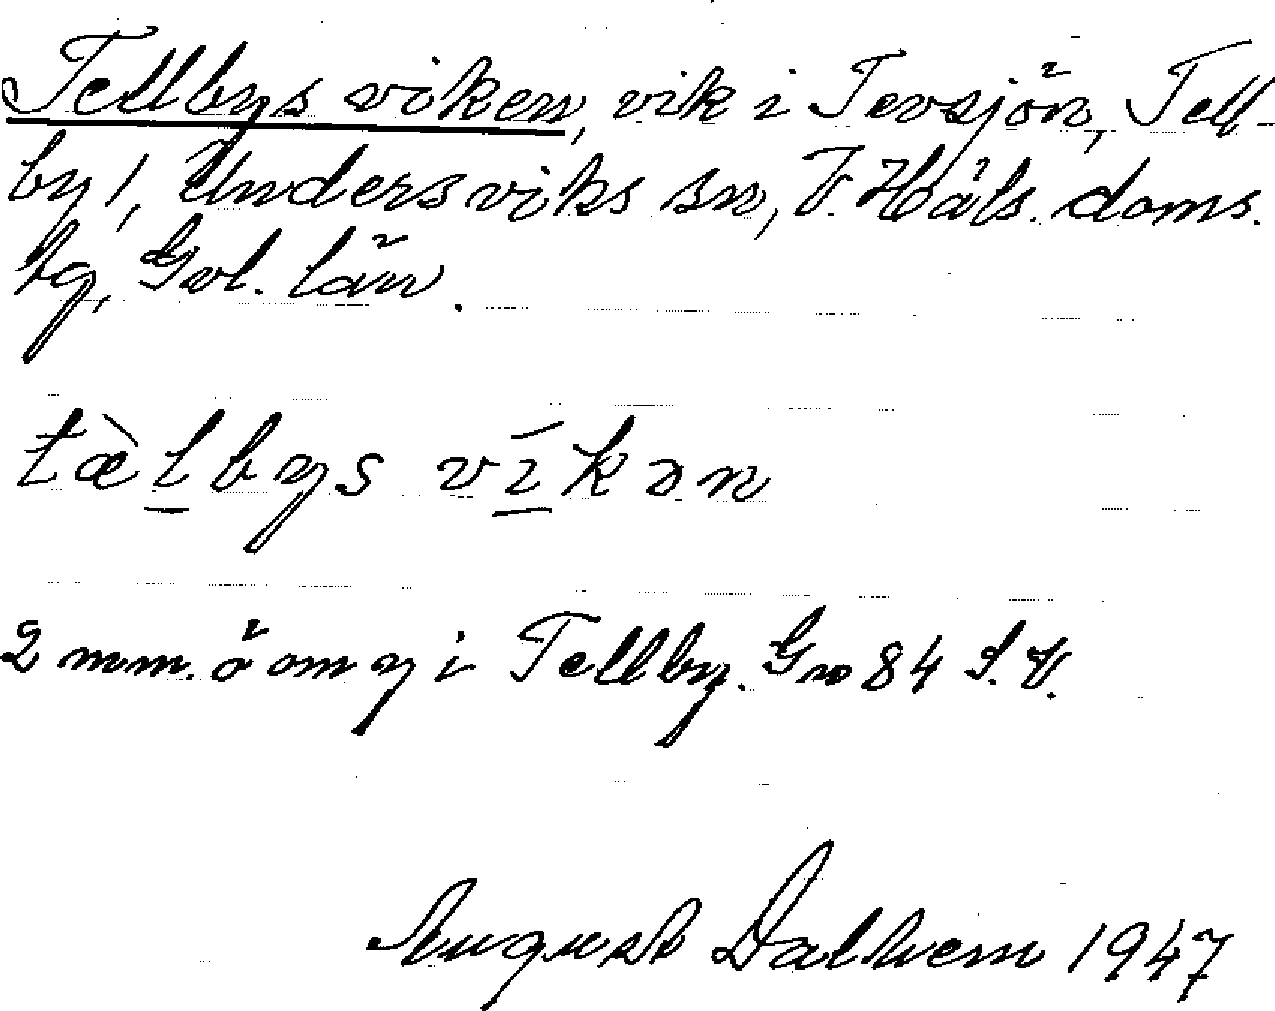 Tellbys viken, vik i Tevsjön, Tell-
by 1, Undersviks sn, V. Häls. doms.
hg, Gvl. län.
tæ̀l̲bys ví̲kən
2 mm. ö om y i Tellby. Gno 84 S.V.
August Dalhem 1947